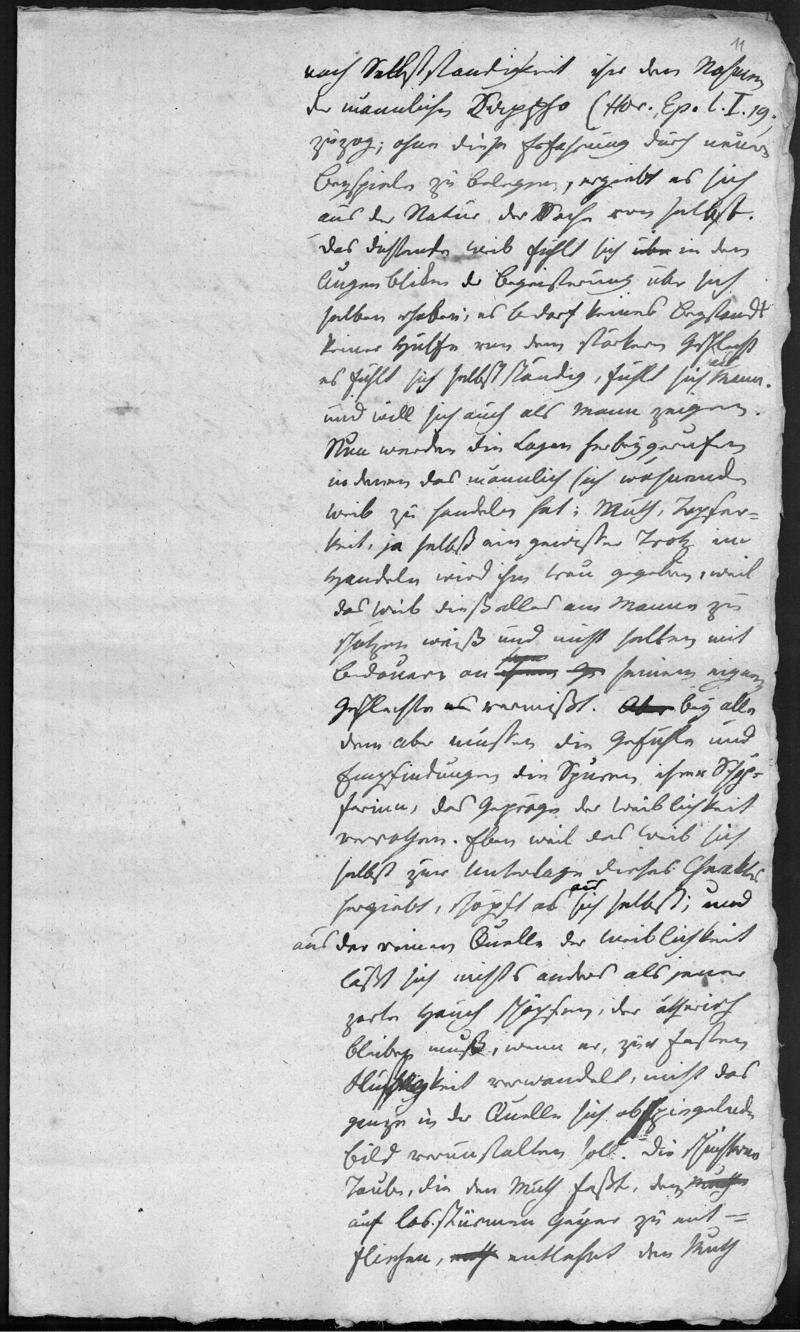 11
nach Selbstständigkeit ihr den Nahmen
der männlichen Sappho (Hor. Ep. l. I. 19.
zuzog; ohne diese Erfahrung durch neuere
Beyspiele zu belegen, ergiebt es sich
aus der Natur der Sache von selbst.
Das dichtende Weib fühlt sich über in den
Augenbliken der Begeisterung über sich
selben erhaben; es bedarf keines Beystands
keiner Hülfe von dem stärkern Geschlecht
es fühlt sich selbstständig, fühlt sich als Mann.
und will sich auch als Mann zeigen.
Nun werden die Lagen herbeygerufen
in denen das männlich sich wähnende
Weib zu handeln hat; Muth, Tapfer=
keit, ja selbst ein gewisser Trotz im
Handeln wird ihm treu gegeben, weil
das Weib dieß alles am Manne zu
schätzen weiß und nicht selten mit
Bedauern an seinem eignen
Geschlechte es vermißt. Aber bey alle
dem aber müssen die Gefühle und
Empfindungen die Spuren ihrer Schöp=
ferinn, das Gepräge der Weiblichkeit
verrathen. Eben weil das Weib sich
selbst zur Unterlage dieses
hergiebt, schöpft es aus sich selbst; und
aus der reinen Quelle der Weiblichkeit
läßt sich nichts anders als jener
zarte Hauch schöpfen, der ätherisch
bleiben muß, wenn er, zur festen
verwandelt, nicht das
ganze in der Quelle sich abspiegelnde
Bild verunstalten soll. Die schüchterne
Taube, die den Muth faßt, dem
auf los stürmen Geyer zu ent=
fliehen, entlehnt den Muth